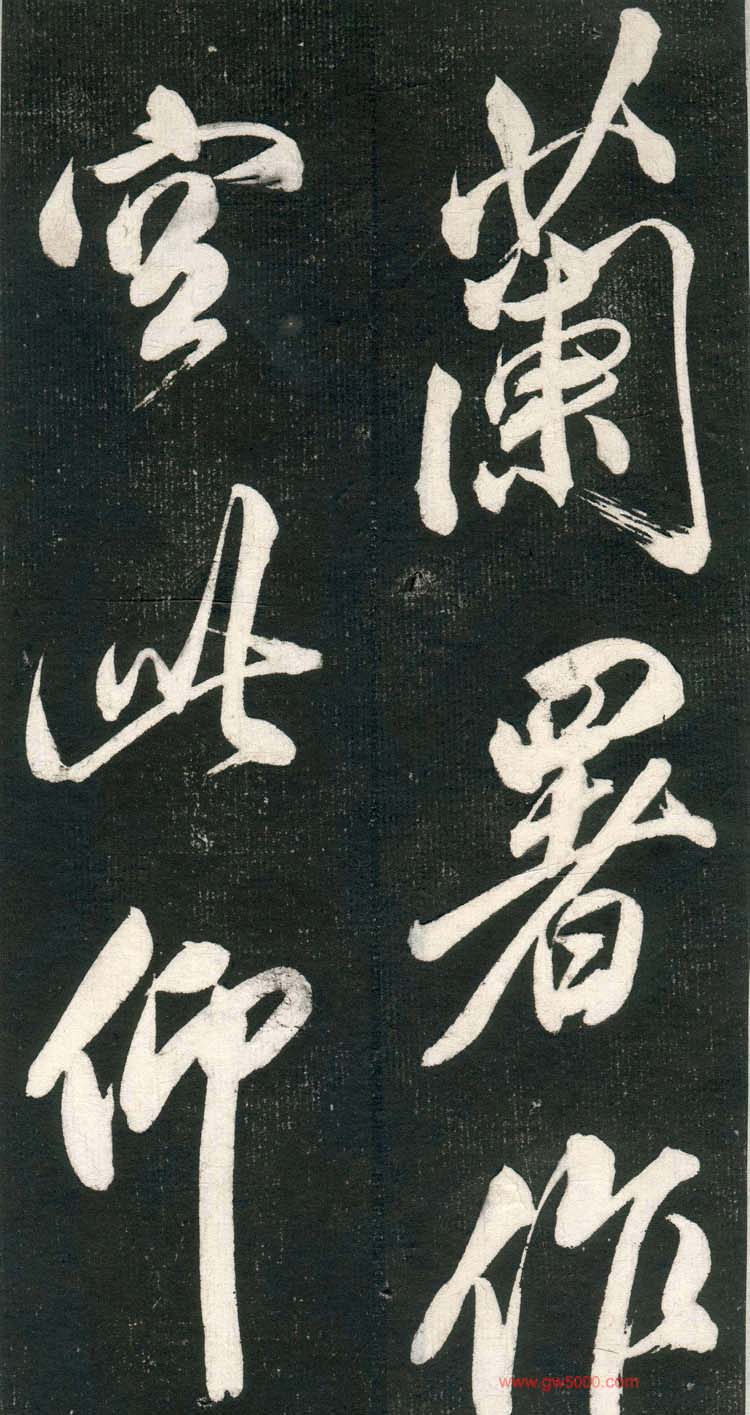 蘭署作
官此仰
www.gw5000.com